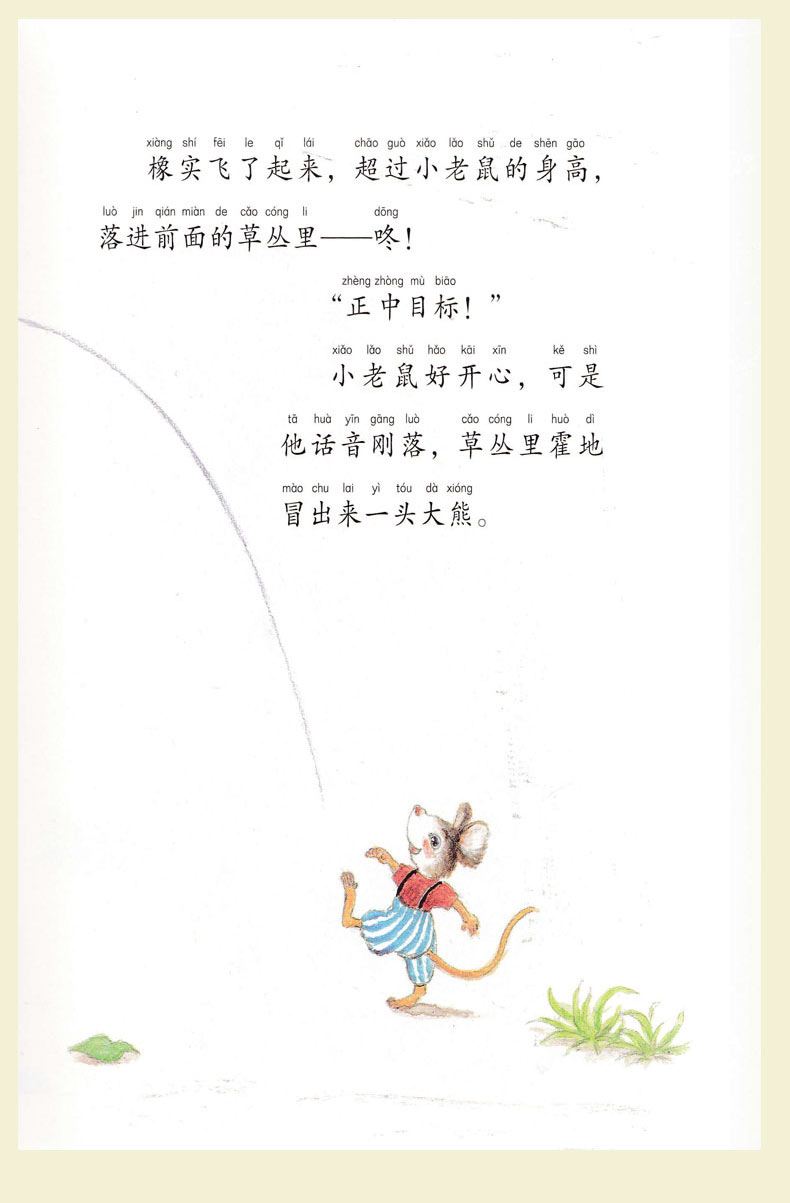 xiàng shí fēi le qǐ lái chāo guò xiǎo lǎo shǔ de shēn gāo
橡实飞了起来，超过小老鼠的身高，
luò jìn qián miàn de cǎo cóng li dōng
落进前面的草丛里——咚！
zhèng zhòng mù biāo
“正中目标！”
xiǎo lǎo shǔ hǎo kāi xīn kě shì
小老鼠好开心，可是
tā huà yīn gāng luò cǎo cóng li huò dì
他话音刚落，草丛里霍地
mào chu lai yì tóu dà xióng
冒出来一头大熊。